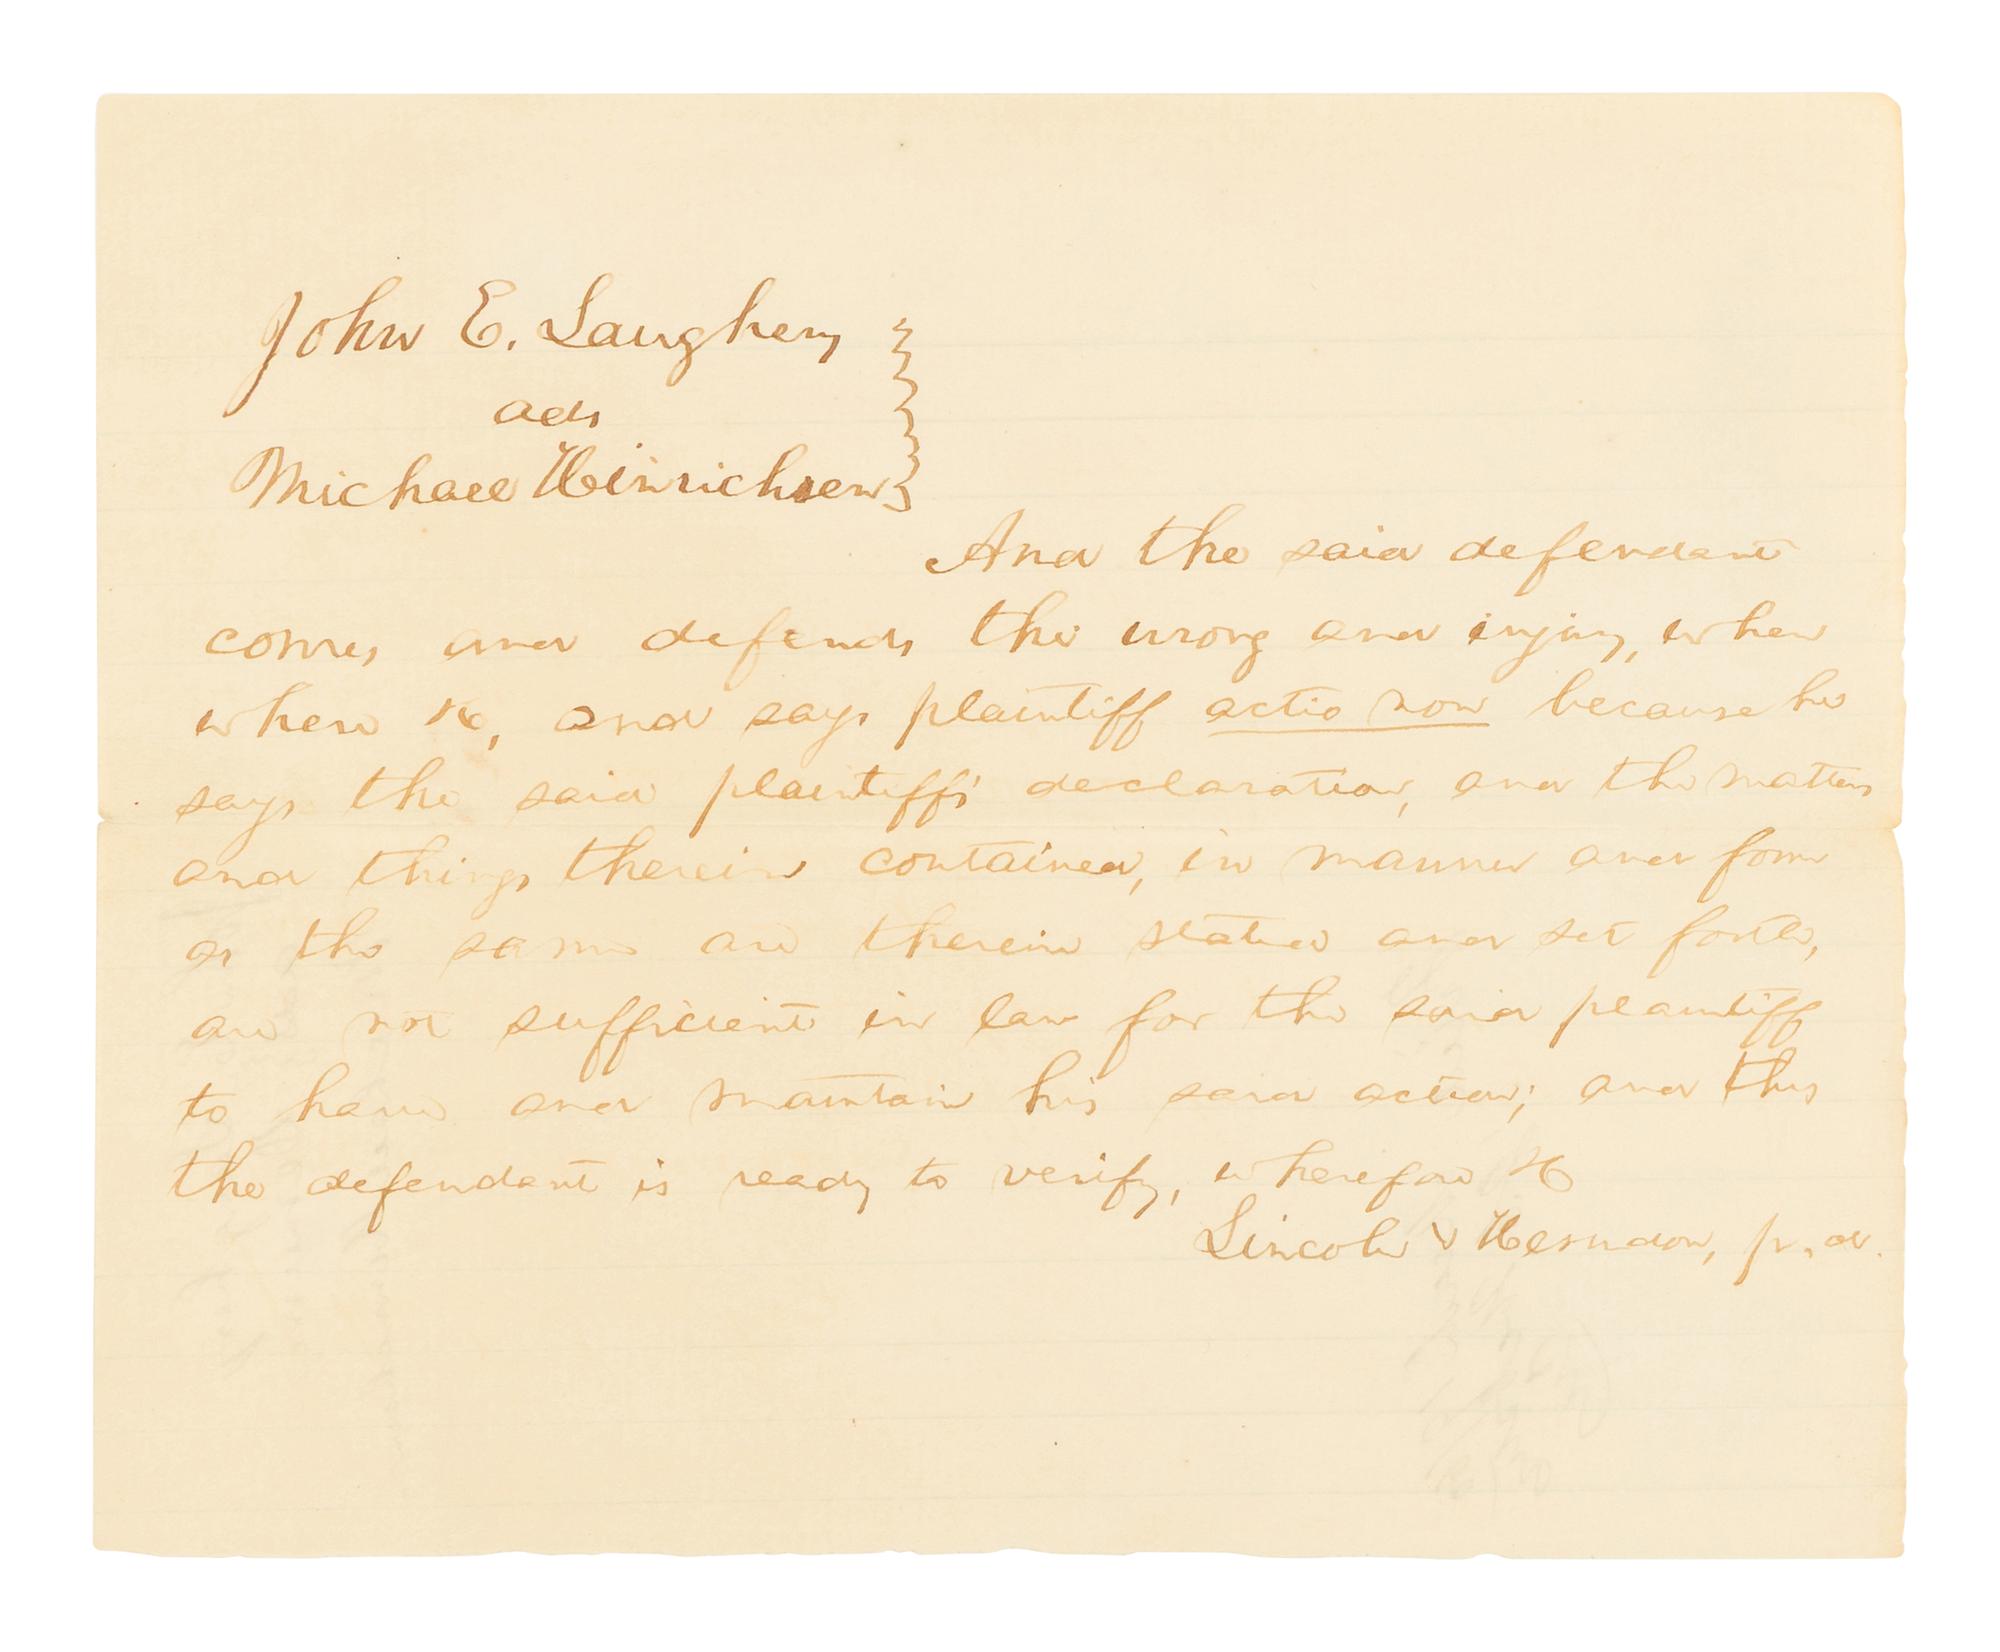 John E. Laughery
ads
Michael Heinrichsen
And the said defendant
comes and defends the wrong and injury, when
where &c, and says plaintiff actio non because he
says the said plaintiff's declaration, and the matters
and things therein contained, in manner and form
as the same are therein stated and set forth,
are not sufficient in law for the said plaintiff
to have and maintain his said action; and this
the defendant is ready to verify, wherefore &c
Lincoln & Herndon, p. d.